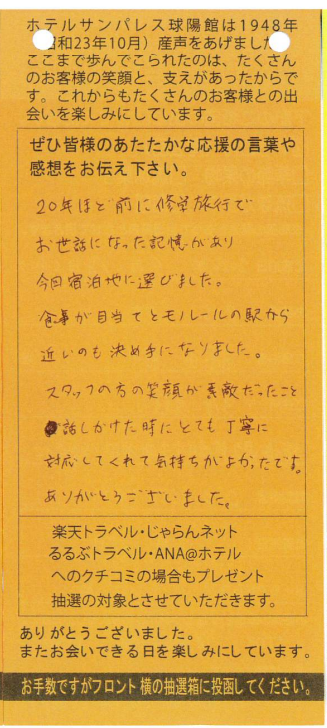 ホテルサンパレス球陽館は1948年
和23年10月）産声をあげまし
ここまで歩んでこられたのは、たくさん
のお客様の笑顔と、支えがあったからで
す。これからもたくさんのお客様との出
会いを楽しみにしています。
ぜひ皆様のあたたかな応援の言葉や
感想をお伝え下さい。
20年ほど前に修学旅行で
お世話になった記憶があり
今回宿泊地に選びました。
食事が目当てとモノレールの駅から
近いのも決め手になりました。
スタッフの方の笑顔が素敵だったこと
話しかけた時にとても丁寧に
対応してくれて気持ちがよかったです。
ありがとうございました。
楽天トラベル・じゃらんネット
るるぶトラベル・ANA@ホテル
へのクチコミの場合もプレゼント
抽選の対象とさせていただきます。
ありがとうございました。
またお会いできる日を楽しみにしています。
お手数ですがフロント横の抽選箱に投函してください。